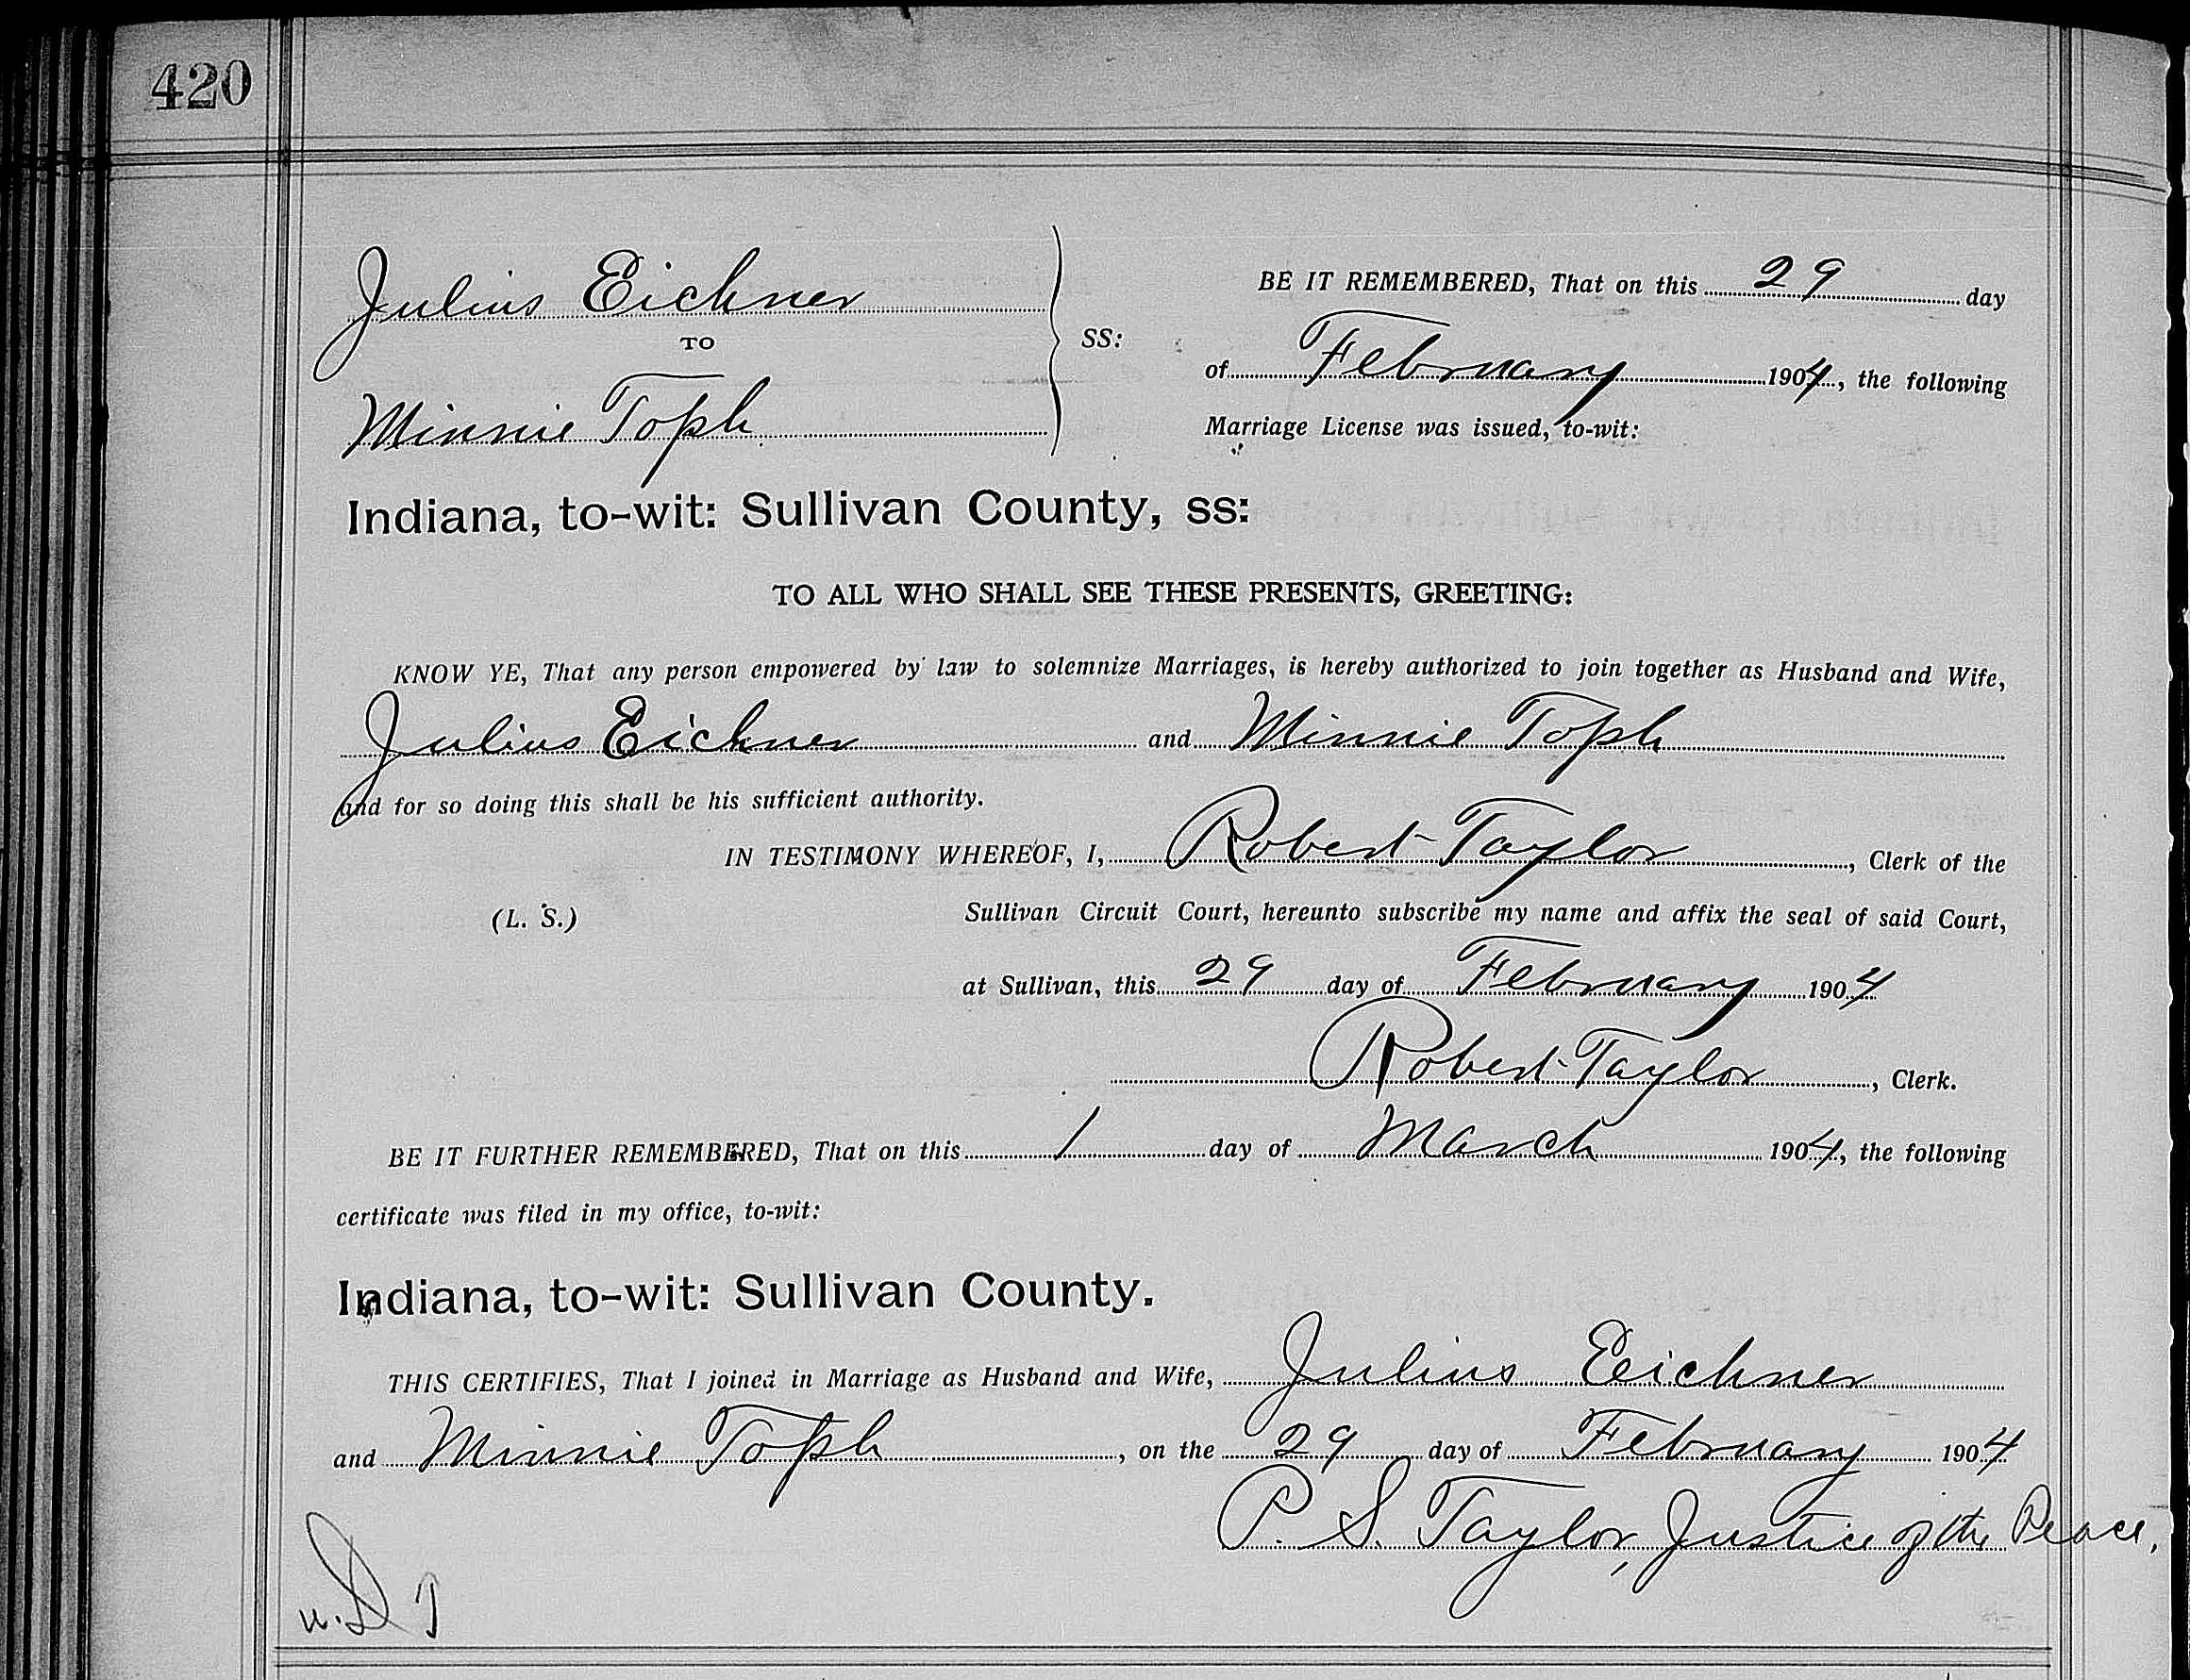 420
Julius Eichner
TO
Minnie Toph
SS:
BE IT REMEMBERED, That on this 29 day
of February 1904, the following
Marriage License was issued, to-wit:
Indiana, to-wit: Sullivan County, ss:
TO ALL WHO SHALL SEE THESE PRESENTS, GREETING:
KNOW YE, That any person empowered by law to solemnize Marriages, is hereby authorized to join together as Husband and Wife,
Julius Eichner and Minnie Toph
and for so doing this shall be his sufficient authority.
IN TESTIMONY WHEREOF, I, Robert Taylor, Clerk of the
(L. S.) Sullivan Circuit Court, hereunto subscribe my name and affix the seal of said Court,
at Sullivan, this 29 day of February 1904
Robert Taylor, Clerk.
BE IT FURTHER REMEMBERED, That on this 1 day of March 1904, the following
certificate was filed in my office, to-wit:
Indiana, to-wit: Sullivan County.
THIS CERTIFIES, That I joined in Marriage as Husband and Wife, Julius Eichner
and Minnie Toph, on the 29 day of February 1904
P. S. Taylor, Justice of the Peace.